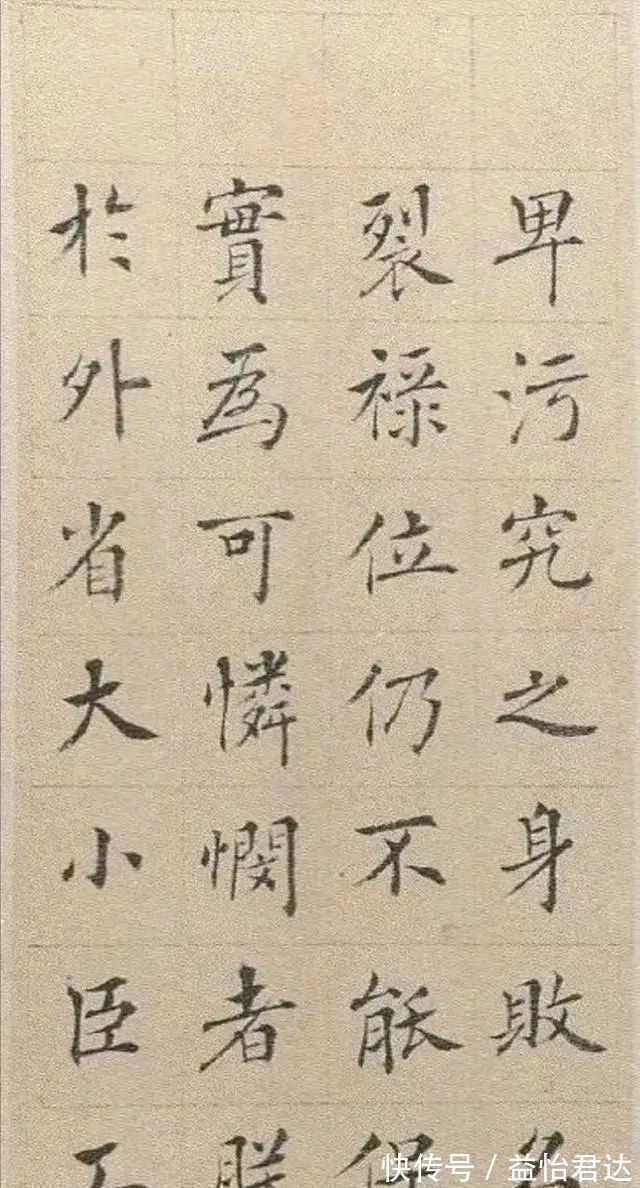 卑污究之身敗
裂禄位仍不能
實為可憐憫者
於外省大小臣
快传号/益怡君达